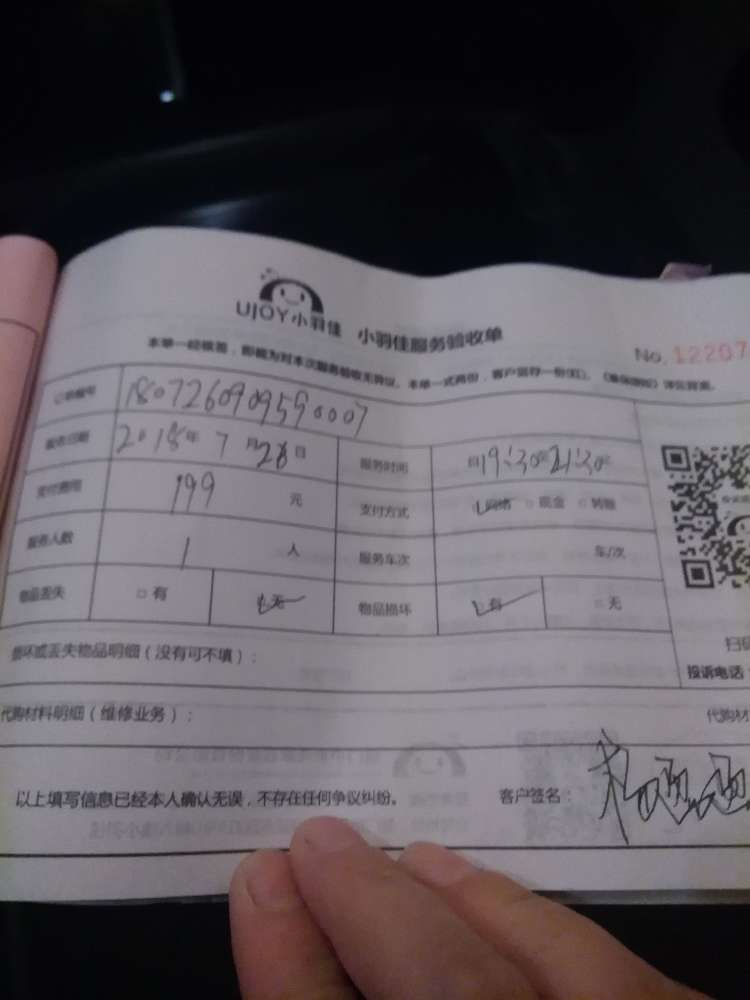 UJOY小羽佳 小羽佳服务验收单
No. 12207
本单一经核签，即视为对本次服务验收无异议。本单一式两份，客户留存一份(红)。
订单编号 1807260909590007
服务日期 2018年7月28日 服务时间 19:30 21:30
支付费用 199 元 支付方式 网络 □现金 □转账
服务人数 1 人 服务车次 车/次
物品丢失 □有 无 物品损坏 有 □无
损坏或丢失物品明细（没有可不填）：
扫码
投诉电话：
代购材料明细（维修业务）： 代购材
以上填写信息已经本人确认无误，不存在任何争议纠纷。 客户签名：